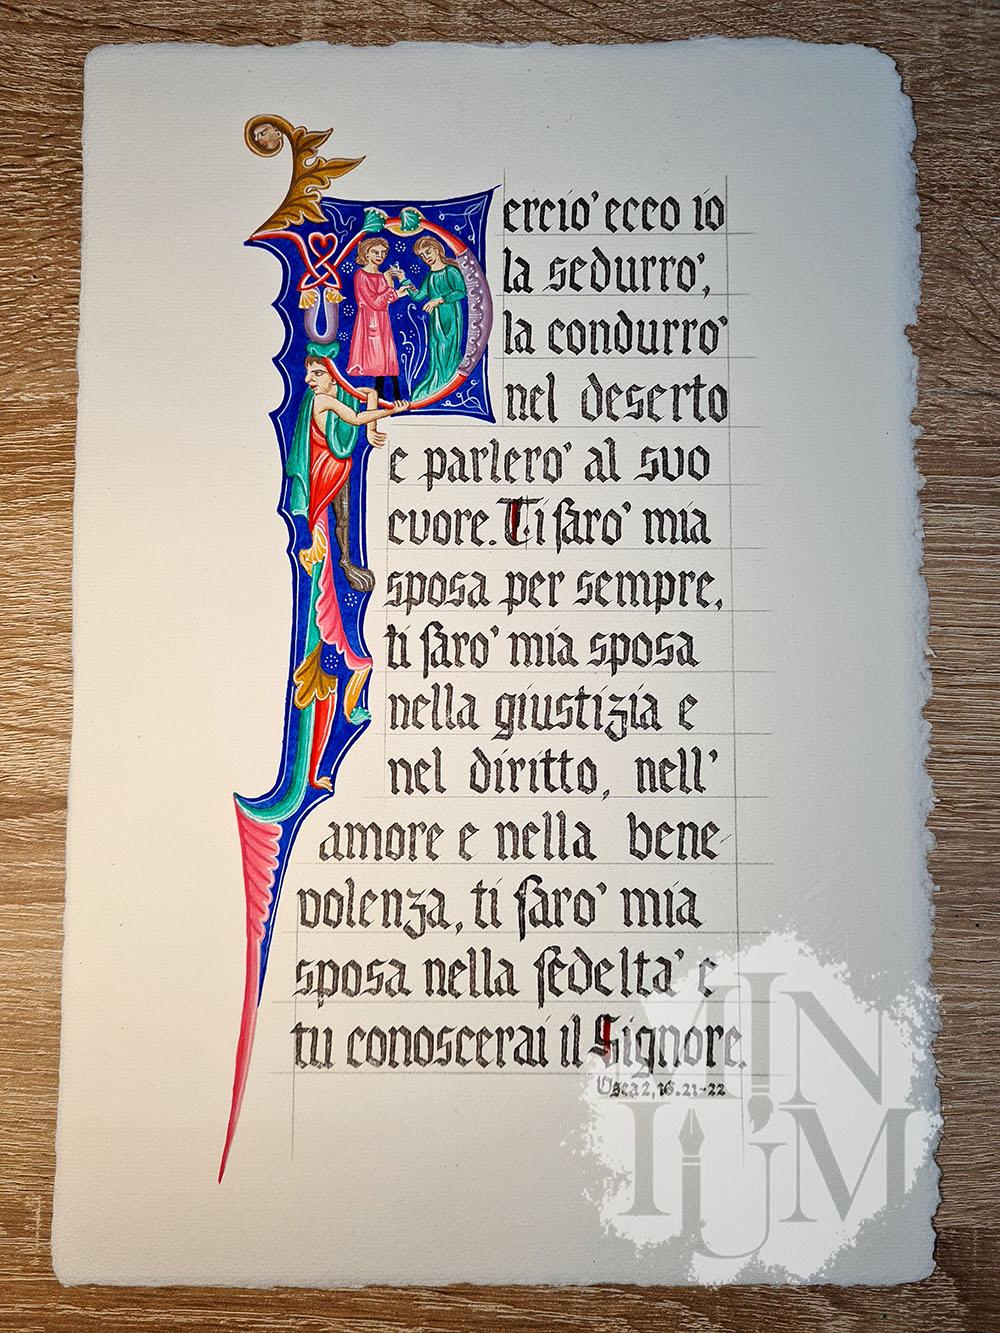 Perciò ecco io
la sedurrò,
la condurrò
nel deserto
e parlerò al suo
cuore. Ti farò mia
sposa per sempre,
ti farò mia sposa
nella giustizia e
nel diritto, nell'
amore e nella bene-
volenza, ti farò mia
sposa nella fedeltà e
tu conoscerai il Signore.
Osea 2, 16.21-22
MINIUM